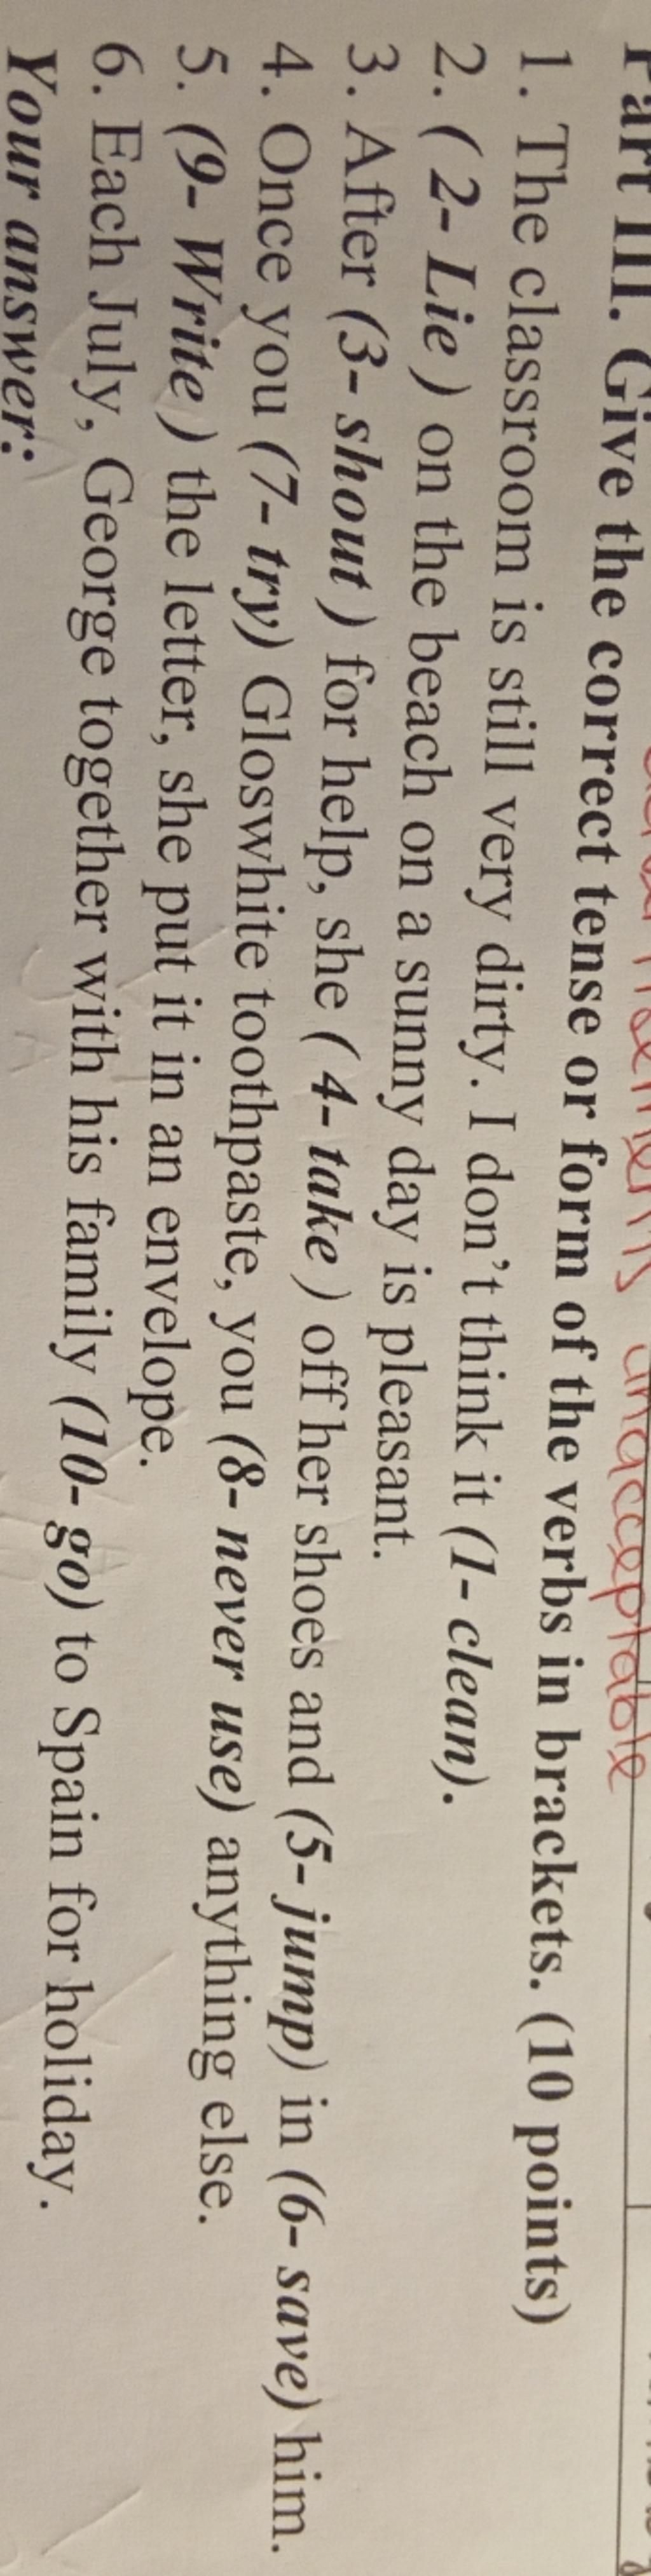 Part III. Give the correct tense or form of the verbs in brackets. (10 points)
1. The classroom is still very dirty. I don't think it (1- clean).
2. ( 2- Lie ) on the beach on a sunny day is pleasant.
3. After (3- shout ) for help, she ( 4- take ) off her shoes and (5- jump) in (6- save) him.
4. Once you (7- try) Gloswhite toothpaste, you (8- never use) anything else.
5. (9- Write ) the letter, she put it in an envelope.
6. Each July, George together with his family (10- go) to Spain for holiday.
Your answer:
unacceptable